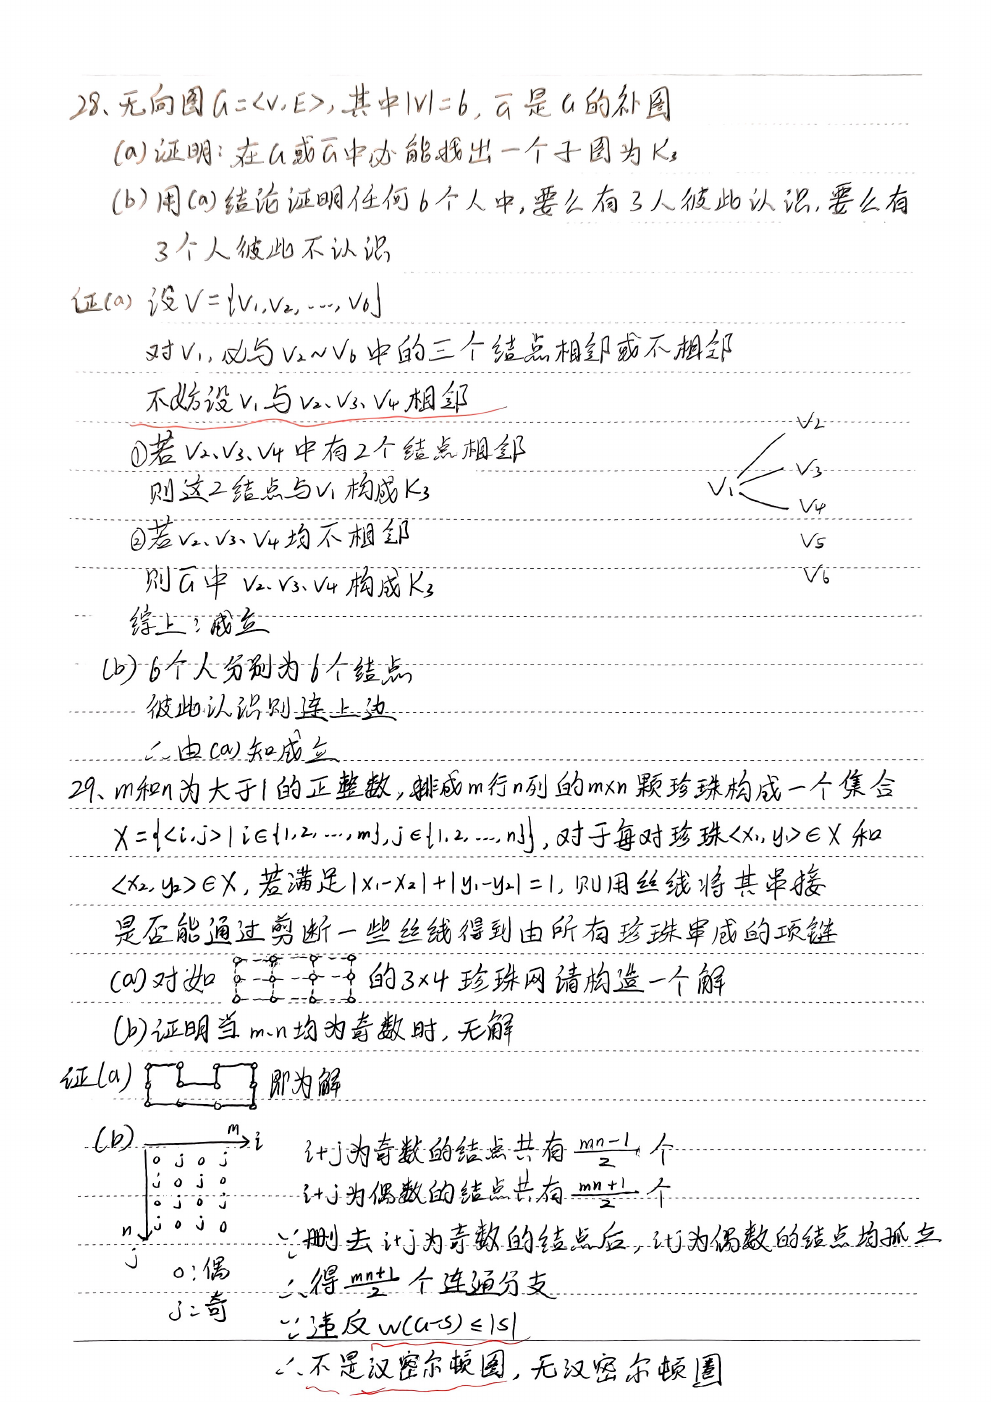 28、无向图G=<V,E>,其中|V|=6,G̅是G的补图
(a)证明:在G或G̅中必能找出一个子图为K₃
(b)用(a)结论证明任何6个人中,要么有3人彼此认识,要么有
3个人彼此不认识
证(a) 设V={V₁,V₂,...,V₆}
对V₁,必与V₂~V₆中的三个结点相邻或不相邻
不妨设V₁与V₂、V₃、V₄相邻
①若V₂、V₃、V₄中有2个结点相邻
则这2结点与V₁构成K₃
②若V₂、V₃、V₄均不相邻
则G̅中 V₂、V₃、V₄构成K₃
V₁
V₂
V₃
V₄
V₅
V₆
综上:成立
(b)6个人分别为6个结点
彼此认识则连上边
∴由(a)知成立
29、m和n为大于1的正整数,排成m行n列的m×n颗珍珠构成一个集合
X={<i,j>|i∈{1,2,...,m},j∈{1,2,...,n}},对于每对珍珠<x₁,y₁>∈X和
<x₂,y₂>∈X,若满足|x₁-x₂|+|y₁-y₂|=1,则用丝线将其串接
是否能通过剪断一些丝线得到由所有珍珠串成的项链
(a)对如 的3×4珍珠网请构造一个解
(b)证明当m、n均为奇数时,无解
证(a) 即为解
(b) m i
o j o j
j o j o
o j o j
j o j o
n
j
o:偶
j:奇
i+j为奇数的结点共有 mn-1/2 个
i+j为偶数的结点共有 mn+1/2 个
∵删去i+j为奇数的结点后,i+j为偶数的结点均孤立
∴得 mn+1/2 个连通分支
∵违反W(G-S)≤|S|
∴不是汉密尔顿图,无汉密尔顿圈